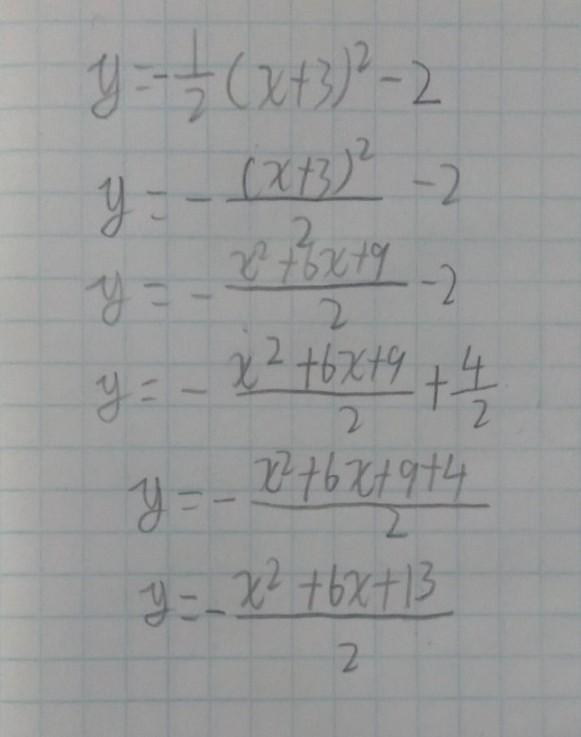 y=-1/2(x+3)²-2
y=-(x+3)²/2-2
y=-x²+6x+9/2-2
y=-x²+6x+9/2+4/2
y=-x²+6x+9+4/2
y=-x²+6x+13/2